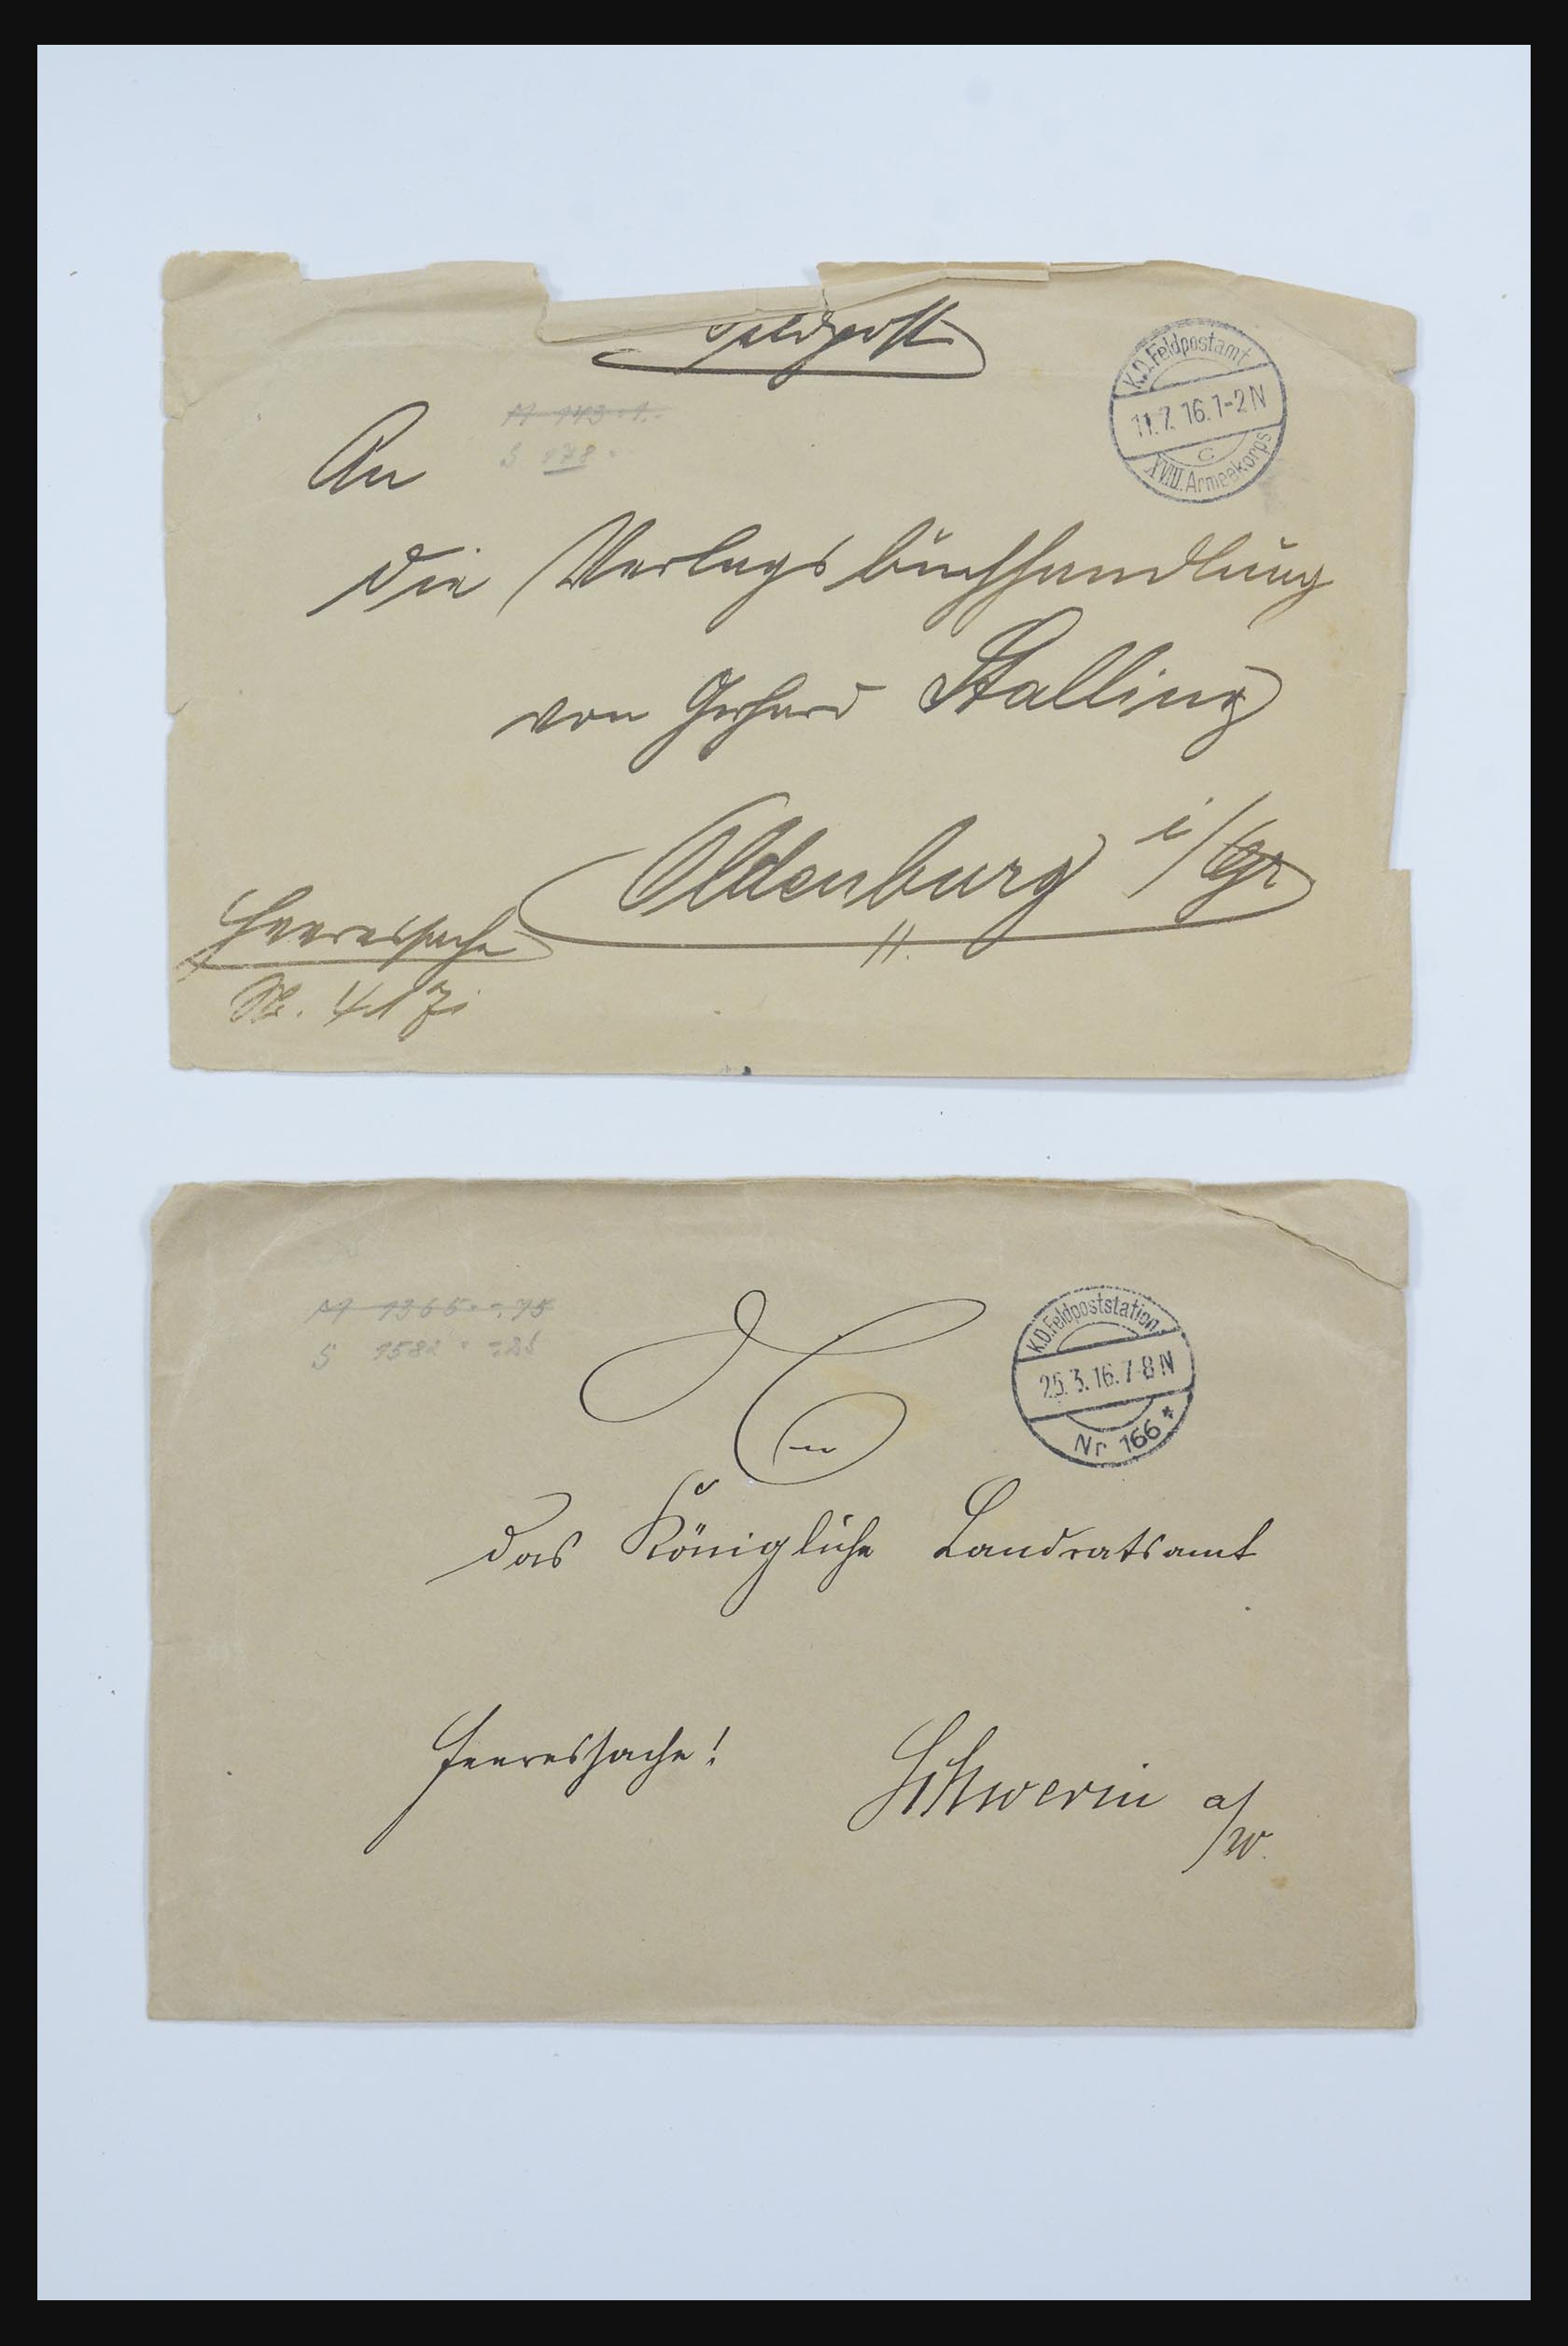 Feldpost
K.D. Feldpostamt
11.7.16. 1-2 N
c
XVIII. Armeekorps
M 143 · 1.-
S 178 ·
An
die Verlagsbuchhandlung
von Gerhard Stalling
Oldenburg i/Gr
Heeressache
417
K.D. Feldpoststation.
25.3.16. 7-8 N
Nr 166 *
M 1365 · -.75
S 1582
An
das Königliche Landratsamt
Heeressache!
Schwerin a/W.